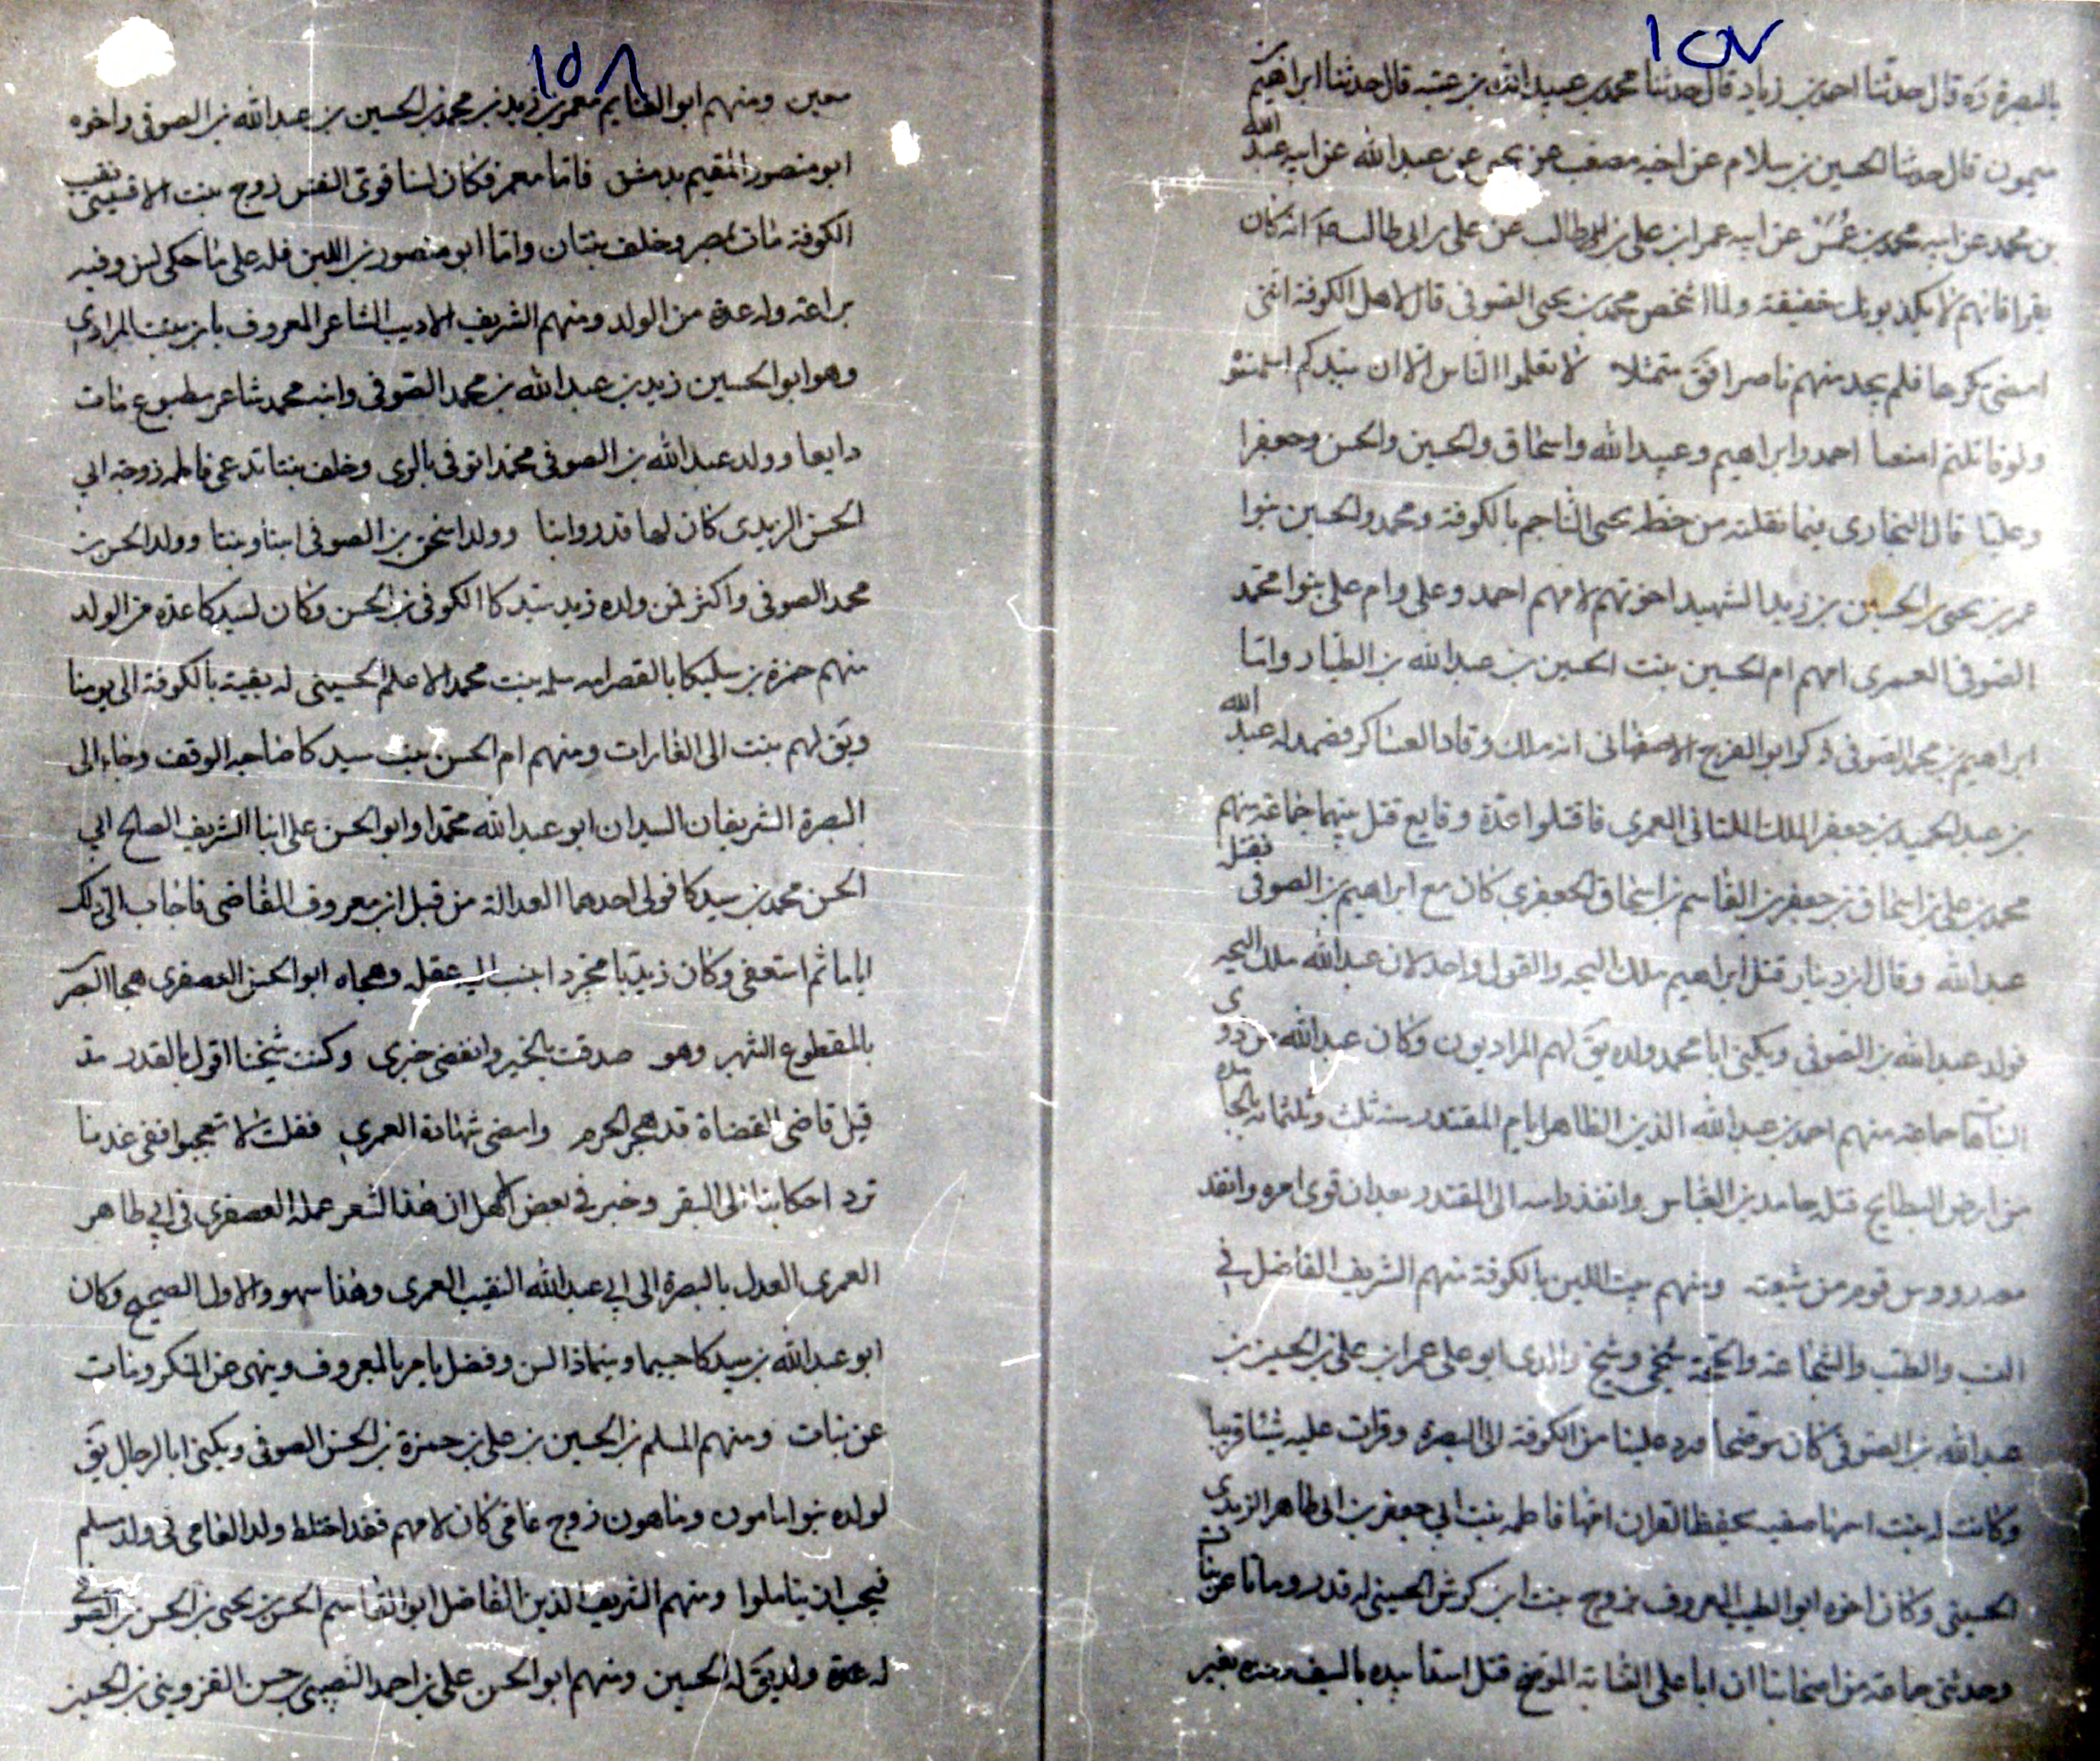 ١٥٧
بالبصرة قال حدثنا احمد بن زياد قال حدثنا محمد بن عبيد الله بن عتبه قال حدثنا ابراهيم بن
ميمون قال حدثنا الحسين بن سلام عن اخيه مصعب عن يحيى عن عبدالله عن ابيه عبد الله
بن محمد عن ابيه محمد بن عمر عن ابيه عمر ابن علي بن ابي طالب عن علي بن ابي طالب انه كان
يقرا فانهم لا يكذبونك خفيفة ولما اشخص محمد بن يحيى الصوفي قال لاهل الكوفة
امضى مكرها فلم يجد منهم ناصرا فق متمثلا لا تعلموا الناس الا ان سيدكم
ولو قاتلتم امتنعا احمد وابراهيم وعبيد الله واسحاق والحسين والحسن وجعفرا
وعليا قال البخاري فيما نقلته من خط يحيى الناجم بالكوفة ومحمد والحسين بنوا
عمر بن يحيى بن الحسين بن زيد الشهيد اخوتهم لامهم احمد وعلي وام علي بنوا محمد
الصوفي العمري امهم ام الحسين بنت الحسين بن عبدالله بن الطيار واما
ابراهيم بن محمد الصوفي ذكر ابو الفرج الاصفهاني انه ملك وقاد العساكر فصمد له عبد الله
بن عبد الحميد بن جعفر الملك الملتاني العمري فاقتتلوا عدة وقايع قتل بينهما جماعة منهم
محمد بن علي بن اسحاق بن جعفر بن القاسم بن اسحاق الجعفري كان مع ابراهيم بن الصوفي فقتل
عبدالله وقال ابن دينار قتل ابراهيم ملك البجه والقول واحد لان عبدالله ملك البجه
فولد عبدالله بن الصوفي ويكنى ابا محمد ولده يق لهم المراديون وكان عبدالله من ذوى
جماعة منهم احمد بن عبدالله الذين الظاهر ايام المقتدر سنه ثلث وثلثمائه
من ارض البطايح قتله حامد بن العباس وانفذ راسه الى المقتدر بعد ان قوى امره وانفذ
معه رووس قوم من شيعته ومنهم بيت اللبن بالكوفة منهم الشريف الفاضل في
النسب والطب والشجاعة والحجة شيخي وشيخ والدي ابو علي عمر ابن علي بن الحسين بن
عبدالله بن الصوفي كان موضحا ورد علينا من الكوفة الى البصرة وقرات عليه شيئا قريبا
وكانت له بنت اسمها صفيه تحفظ القران امها فاطمه بنت ابي جعفر بن ابي طاهر الزيدى
الحسيني وكان اخوه ابو الطيب المعروف بزوج بنت ابن كرش الحسيني له قدر وماتا عن بنات
وحدثني جماعة من اصحابنا ان ابا علي النسابة الموضح قتل اسدا بيده بالسيف وحده بغير
١٥٨
معين ومنهم ابو الغنايم معمر بن زيد بن محمد بن الحسين بن عبدالله بن الصوفي واخوه
ابو منصور المقيم بدمشق فاما معمر فكان لسنا قوى النفس زوج بنت الاقسيسي نقيب
الكوفة مات بمصر وخلف بنتان واما ابو منصور بن اللبن فله على ما حكى لسن وفيه
براعة وله عدة من الولد ومنهم الشريف الاديب الشاعر المعروف بابن بنت المرادي
وهو ابو الحسين زيد بن عبدالله بن محمد الصوفي وابنه محمد شاعر مطبوع مات
دايعا وولد عبدالله بن الصوفي محمدا توفى بالرى وخلف بنتا تدعى فاطمه زوجة ابي
الحسن الزيدى كان لها قدر وابنا وولد اسحق بن الصوفي ابنا وبنتا وولد الحسن بن
محمد الصوفي واكثر فمن ولده زيد سيدكا الكوفي بن الحسن وكان لسيدكا عدة من الولد
منهم حمزة بن سليكا بالقصر امه سلمه بنت محمد الاعلم الحسيني له بقية بالكوفة الى يومنا
ويق لهم بنت ابي الغارات ومنهم ام الحسن بنت سيدكا صاحبة الوقف وجاء الى
البصرة الشريفان السيدان ابو عبدالله محمدا وابو الحسن علي ابنا الشريف الصالح ابي
الحسن محمد بن سيدكا فولى احدهما العدالة من قبل ابن معروف القاضي فاجاب الى ذلك
اياما ثم استعفى وكان زيديا مجردا وهجاه ابو الحسن العصفرى هجا البصر
بالمقطوع الشهر وهو صدقت بالخير وانقضى خبرى وكنت شيخنا اقول بالقدر مذ
قيل قاضي القضاة قد هجر الحزم وامضى شهادة العمرى فقلت لا تعجبوا ففى غد
ترد احكامنا الى البقر وخبر في بعض اهل ان هذا الشعر عمله العصفري في ابي طاهر
العمرى العدل بالبصرة الى ابي عبدالله النقيب العمرى وهذا سهو والاول الصحيح وكان
ابو عبدالله بن سيدكا جسيما وسيما ذا لسن وفضل يامر بالمعروف وينهى عن المنكر ومات
عن بنات ومنهم المسلم بن الحسين بن علي بن حمزة بن الحسن الصوفي ويكنى ابا الرجال يق
لولده بنوا مامون وماهون زوج غافي كان لامهم فقد اختلط ولد الغامي في ولد مسلم
فيجب ان يتاملوا ومنهم الشريف الدين الفاضل ابو القاسم الحسن بن يحيى بن الحسن بن الصوفي
له عدة ولد يق له الحسين ومنهم ابو الحسن علي بن احمد النصيبي بن حسن القزويني بن الحسين